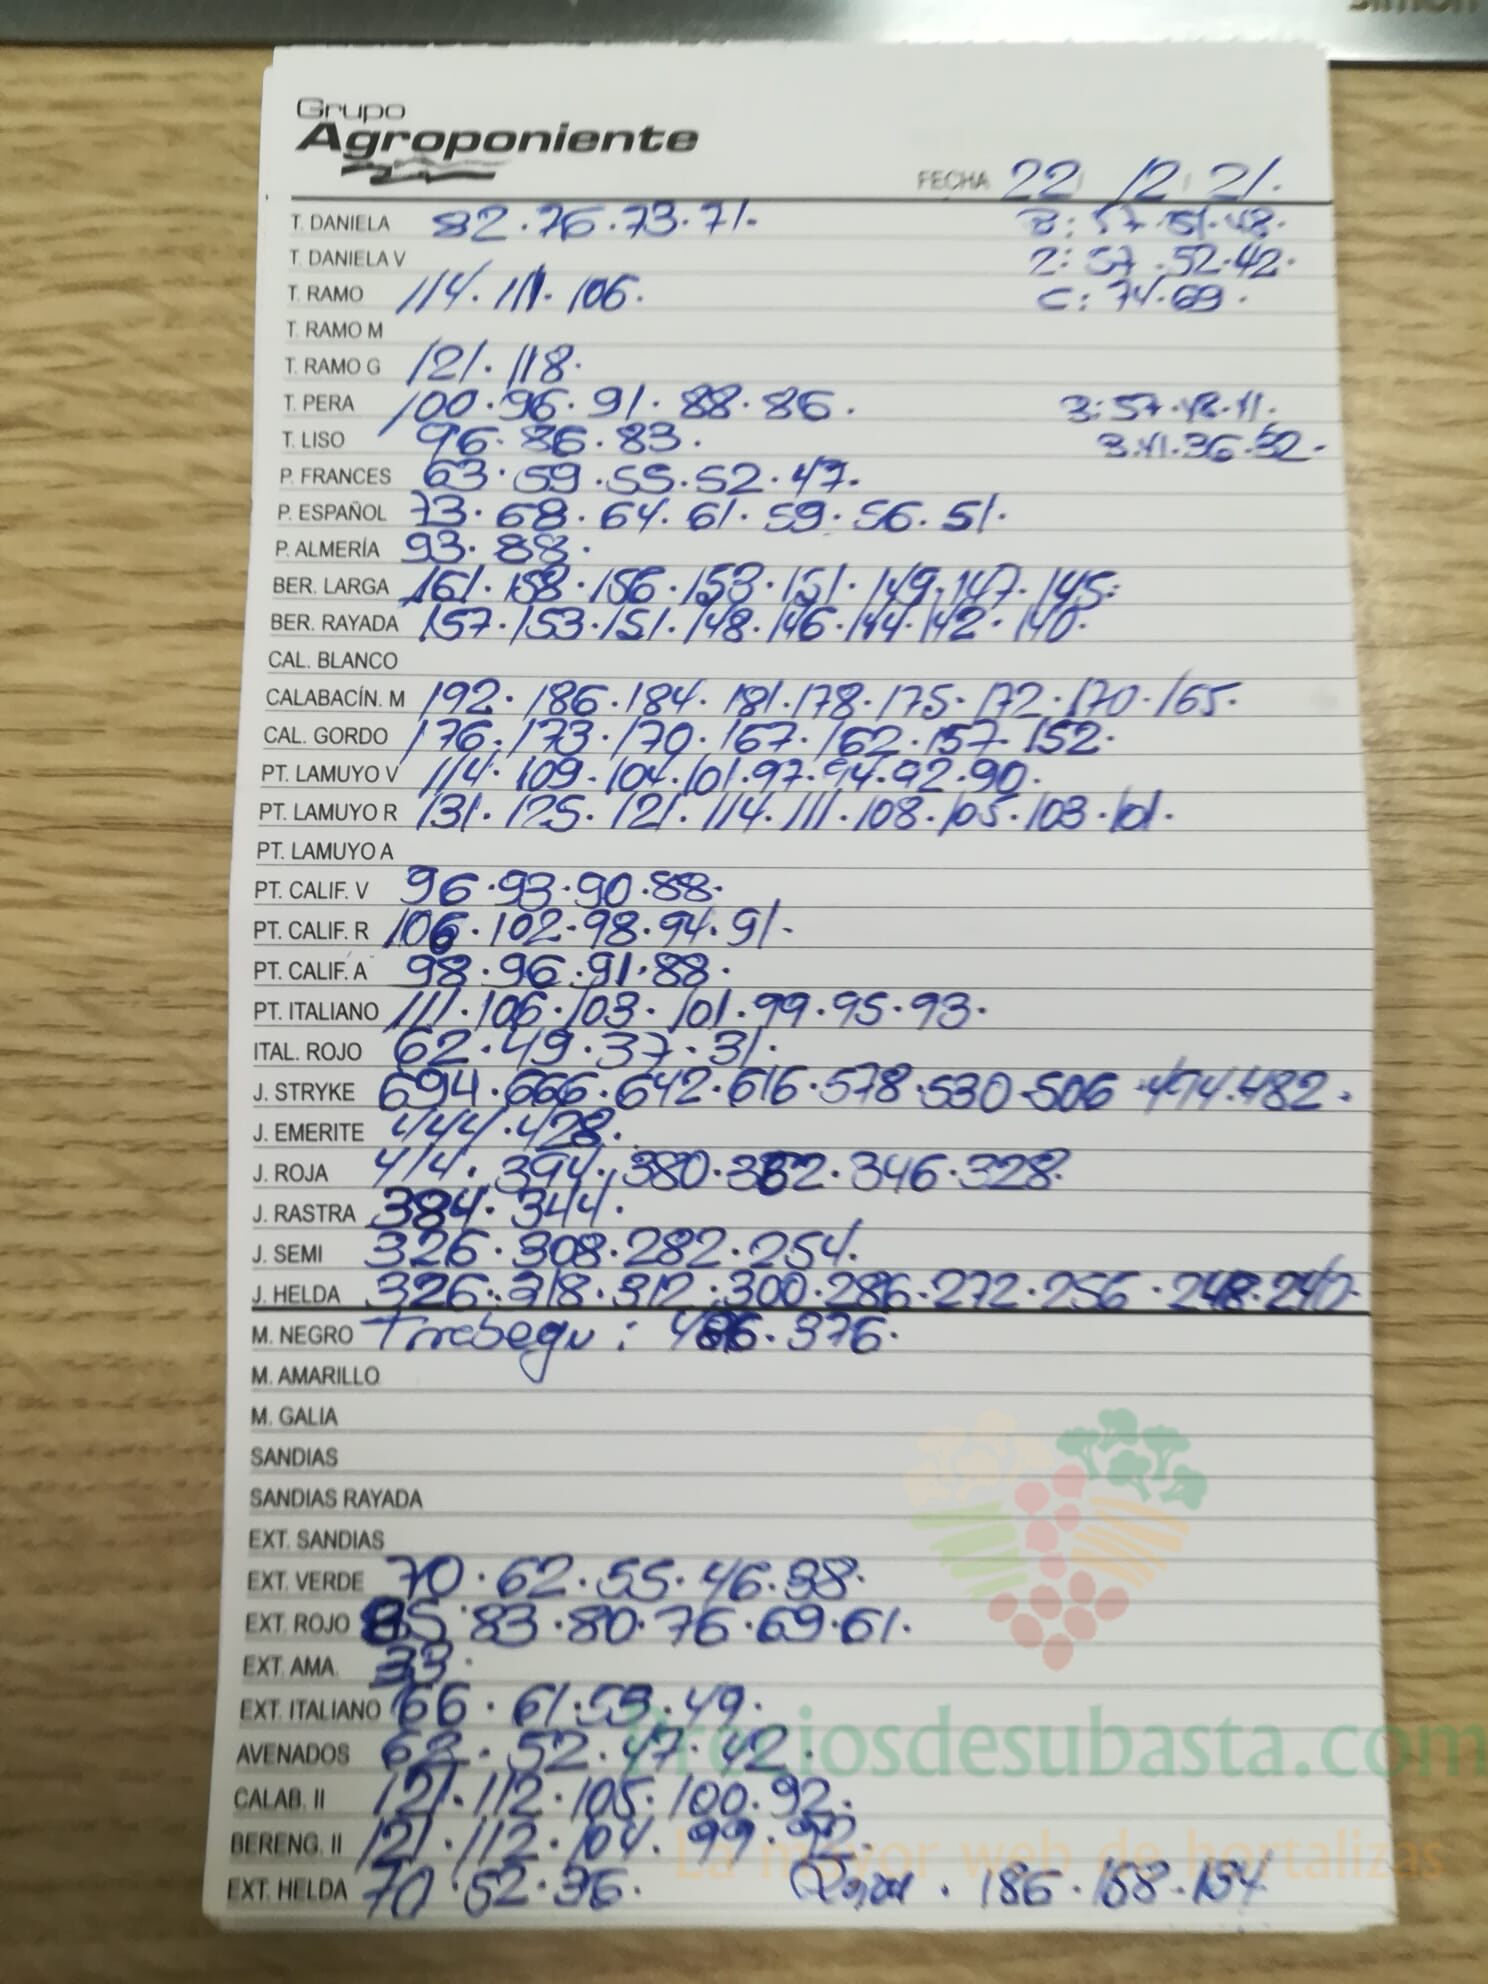 simon
Grupo
Agroponiente
FECHA 22 /2 21.
T. DANIELA 82.76.73.71. B: 57.51.48.
T. DANIELA V 2: 57.52.42.
T. RAMO 114.111.106. C: 74.69.
T. RAMO M
T. RAMO G 121.118.
T. PERA 100.96.91.88.86. 3: 57.48.41.
T. LISO 96.86.83. 3.41.36.32.
P. FRANCES 63.59.55.52.47.
P. ESPAÑOL 73.68.64.61.59.56.51.
P. ALMERÍA 93.88.
BER. LARGA 161.158.156.153.151.149.147.145.
BER. RAYADA 157.153.151.148.146.144.142.140.
CAL. BLANCO
CALABACÍN. M 192.186.184.181.178.175.172.170.165.
CAL. GORDO 176.173.170.167.162.157.152.
PT. LAMUYO V 114.109.104.101.97.94.92.90.
PT. LAMUYO R 131.125.121.114.111.108.105.103.101.
PT. LAMUYO A
PT. CALIF. V 96.93.90.88.
PT. CALIF. R 106.102.98.94.91.
PT. CALIF. A 98.96.91.88.
PT. ITALIANO 111.106.103.101.99.95.93.
ITAL. ROJO 62.49.37.31.
J. STRYKE 694.666.642.616.578.530.506.494.482.
J. EMERITE 444.428.
J. ROJA 414.394.380.362.346.328.
J. RASTRA 384.344.
J. SEMI 326.308.282.254.
J. HELDA 326.318.312.300.286.272.256.248.240.
M. NEGRO : 376.
M. AMARILLO
M. GALIA
SANDIAS
SANDIAS RAYADA
EXT. SANDIAS
EXT. VERDE 70.62.55.46.38.
EXT. ROJO 85.83.80.76.69.61.
EXT. AMA. 33.
EXT. ITALIANO 66.61.53.49.
AVENADOS 62.52.47.42.
Preciosdesubasta.com
CALAB. II 121.112.105.100.92.
BERENG. II 121.112.104.99.92.
La mayor web de hortalizas
EXT. HELDA 70.52.36. Rojal . 186.158.134